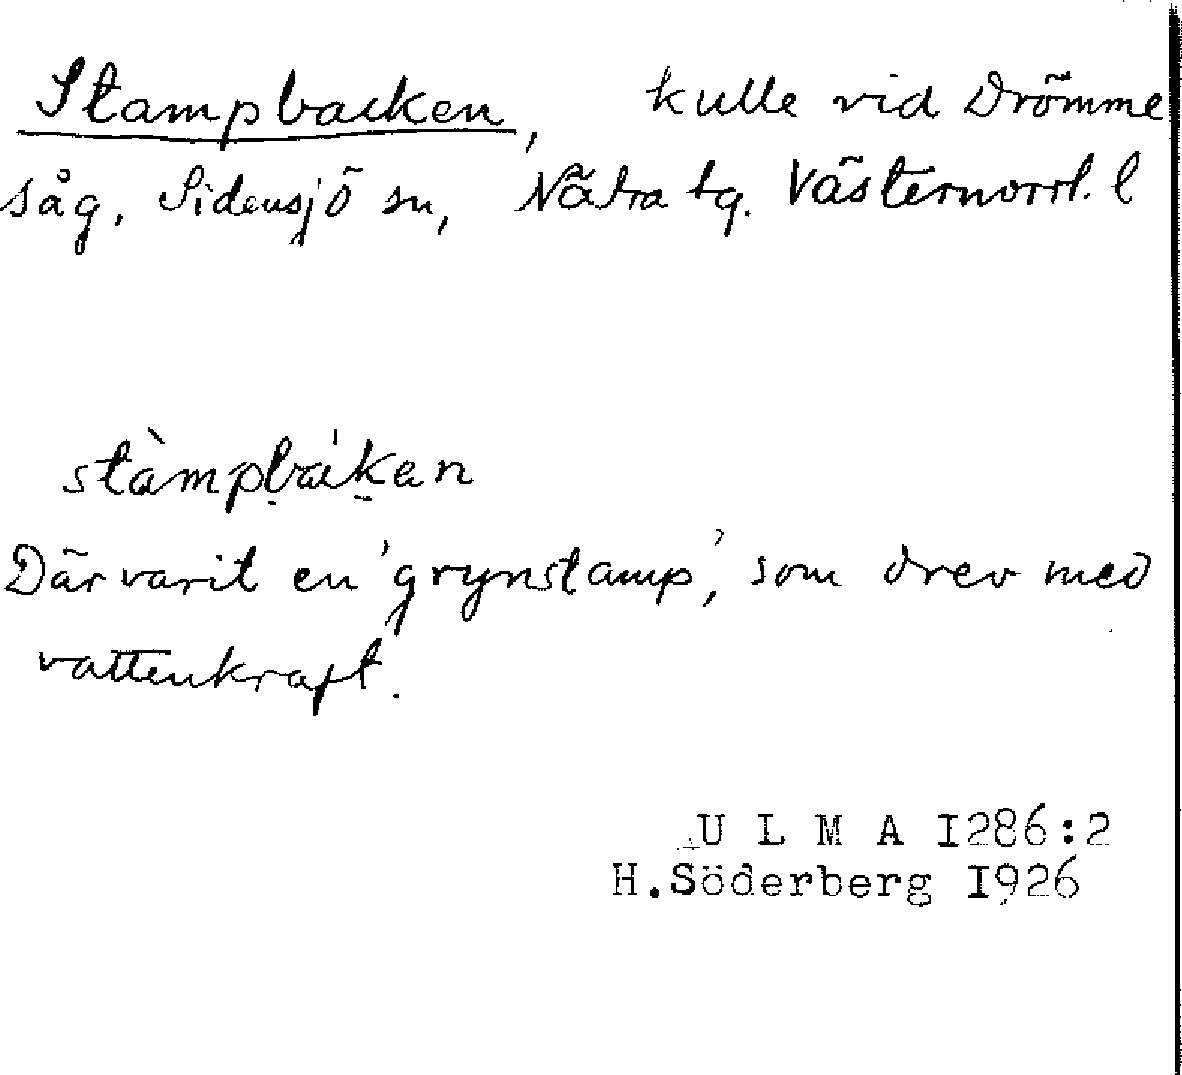 Stampbacken, kulle vid Drömme
såg, Sidensjö sn, Nätra tg. Västernorrl. l
stàmpba̍ken
Där varit en 'grynstamp', som drev med
vattenkraft.
U L M A I286:2
H.Söderberg I926